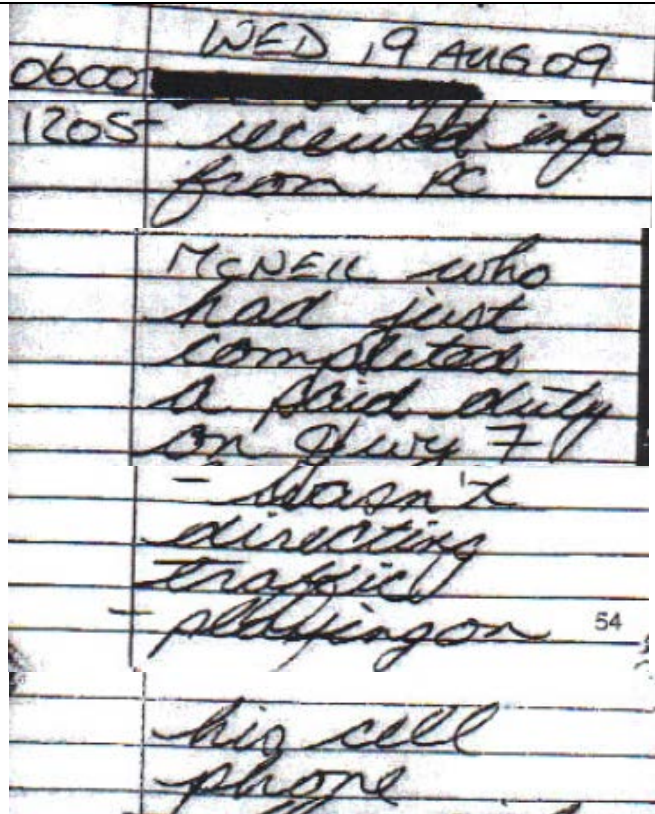 WED 19 AUG 09
0600
1205- received info
from PC
MCNEIL who
had just
completed
a paid duty
on Hwy 7
- Wasn't
directing
traffic
- playing on 54
his cell
phone